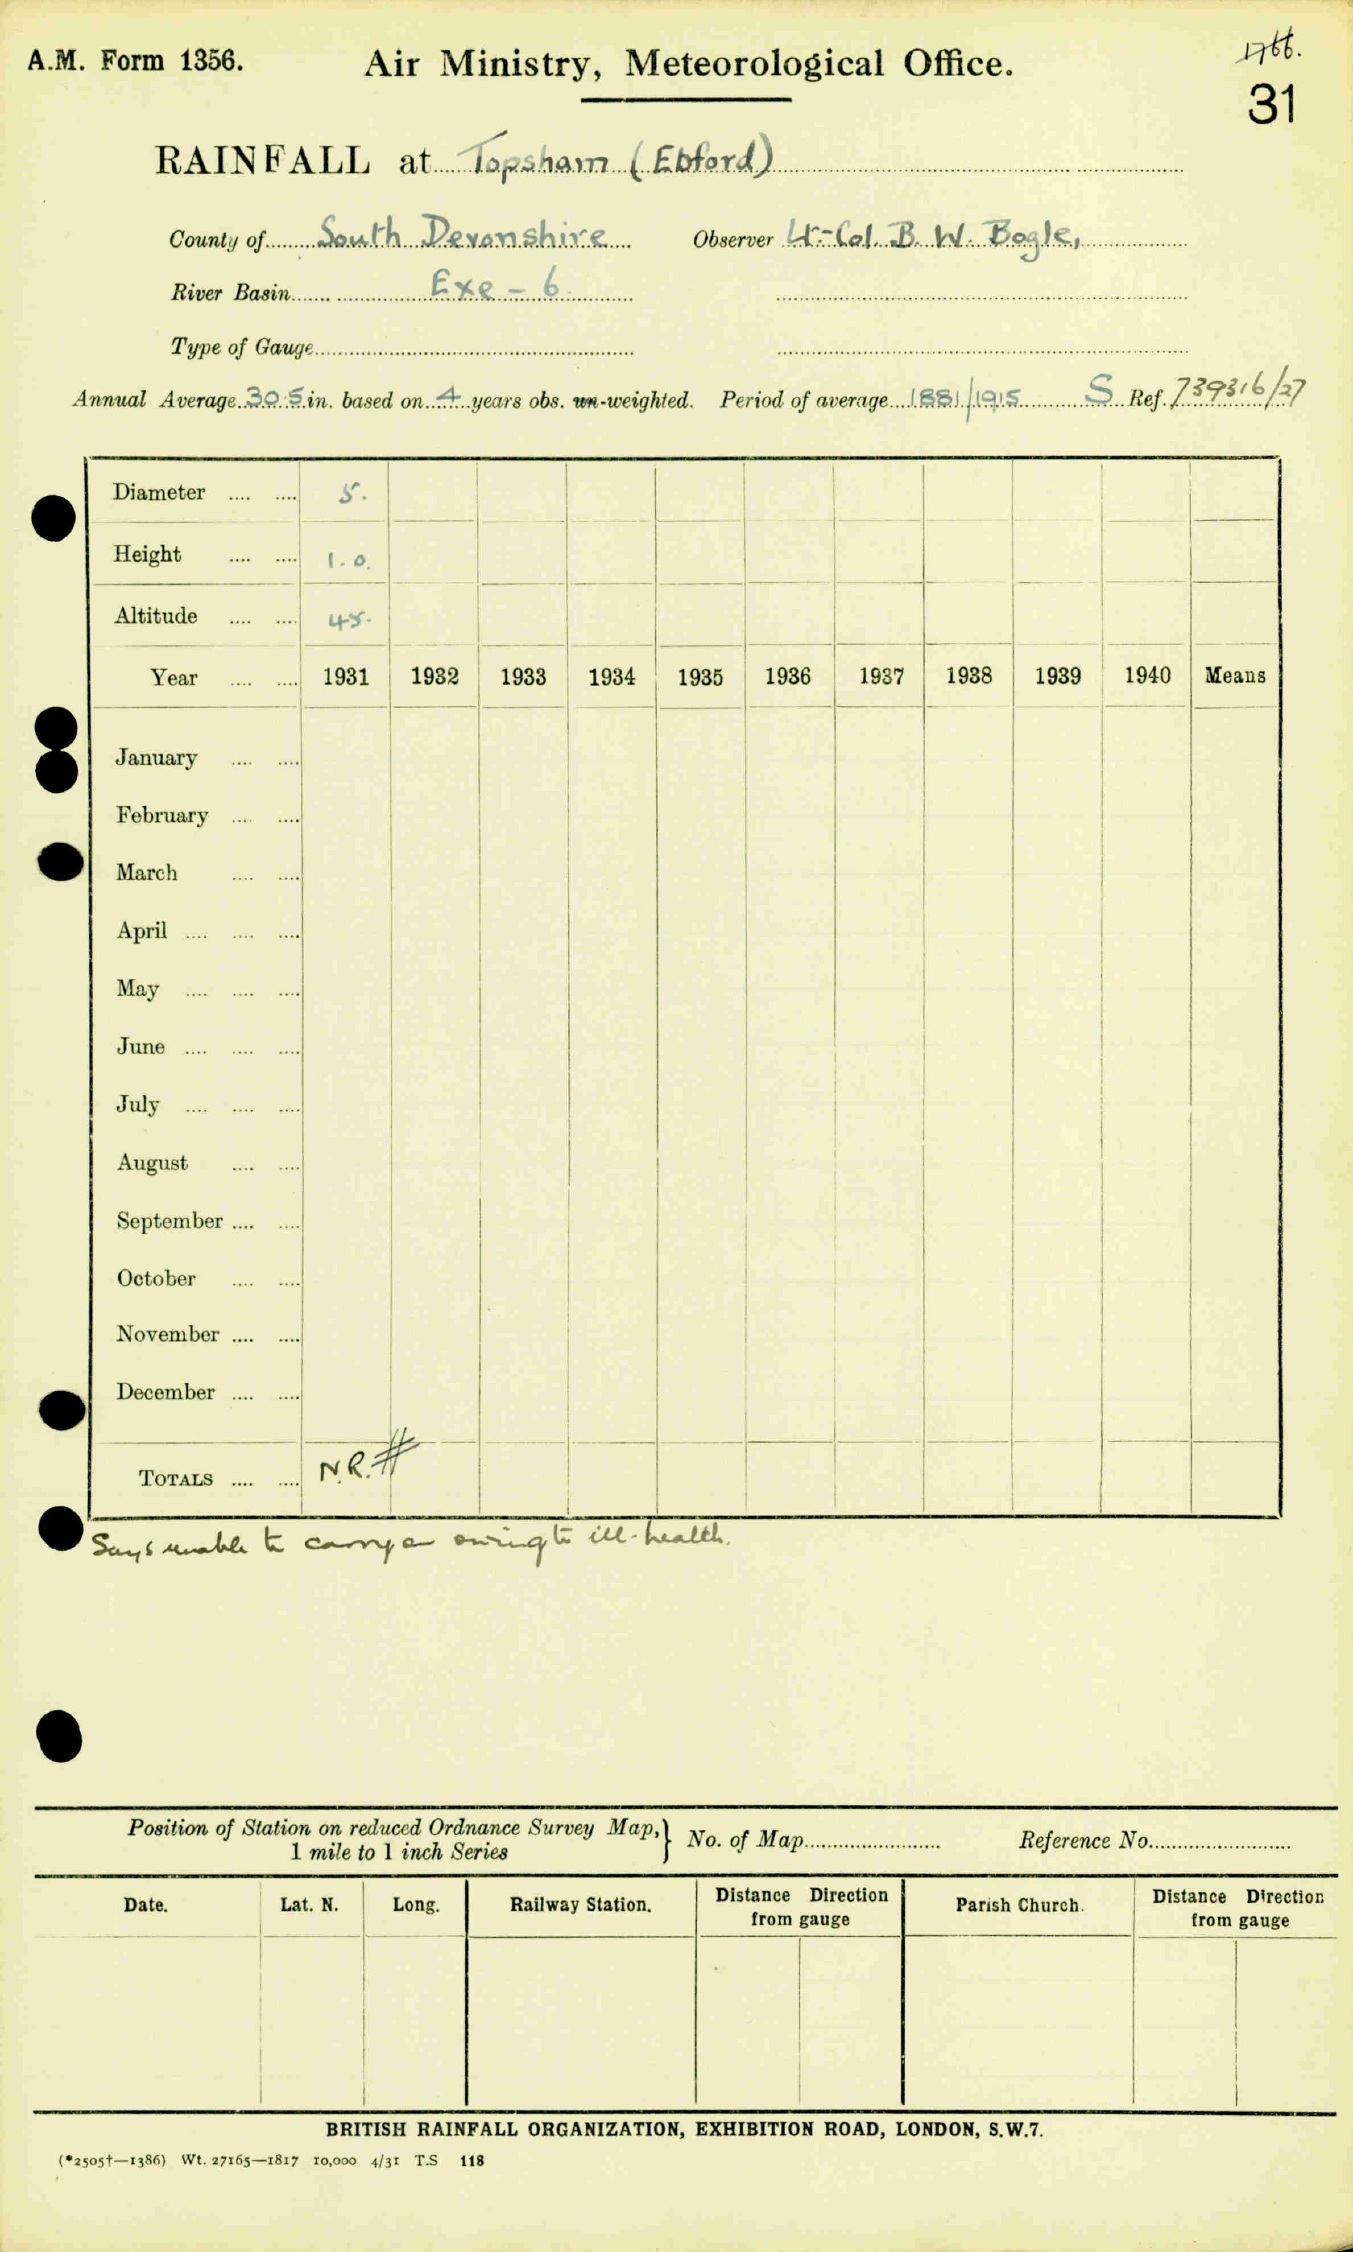 A.M. Form 1356.
Air Ministry, Meteorological Office.
1766.
31
RAINFALL at Topsham (Ebford)
County of South Devonshire
Observer Lt-Col. B. W. Bogle,
River Basin Exe - 6
Type of Gauge
Annual Average 30.5 in. based on 4 years obs. un-weighted. Period of average 1881/1915 S Ref. 739316/27
Diameter .... .... 5.
Height .... .... 1.0.
Altitude .... .... 45.
Year .... .... 1931 1932 1933 1934 1935 1936 1937 1938 1939 1940 Means
January .... ....
February .... ....
March .... ....
April .... .... ....
May .... .... ....
June .... .... ....
July .... .... ....
August .... ....
September .... ....
October .... ....
November .... ....
December .... ....
TOTALS .... .... N.R. #
Says unable to carry on owing to ill-health.
Position of Station on reduced Ordnance Survey Map,
1 mile to 1 inch Series
No. of Map
Reference No.
Date. Lat. N. Long. Railway Station. Distance Direction from gauge Parish Church. Distance Direction from gauge
BRITISH RAINFALL ORGANIZATION, EXHIBITION ROAD, LONDON, S.W.7.
(*2505†—1386) Wt. 27165—1817 10,000 4/31 T.S 118